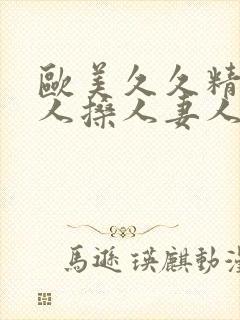 歐美久久精
人搡人妻人
馬遜瑛麒動漫